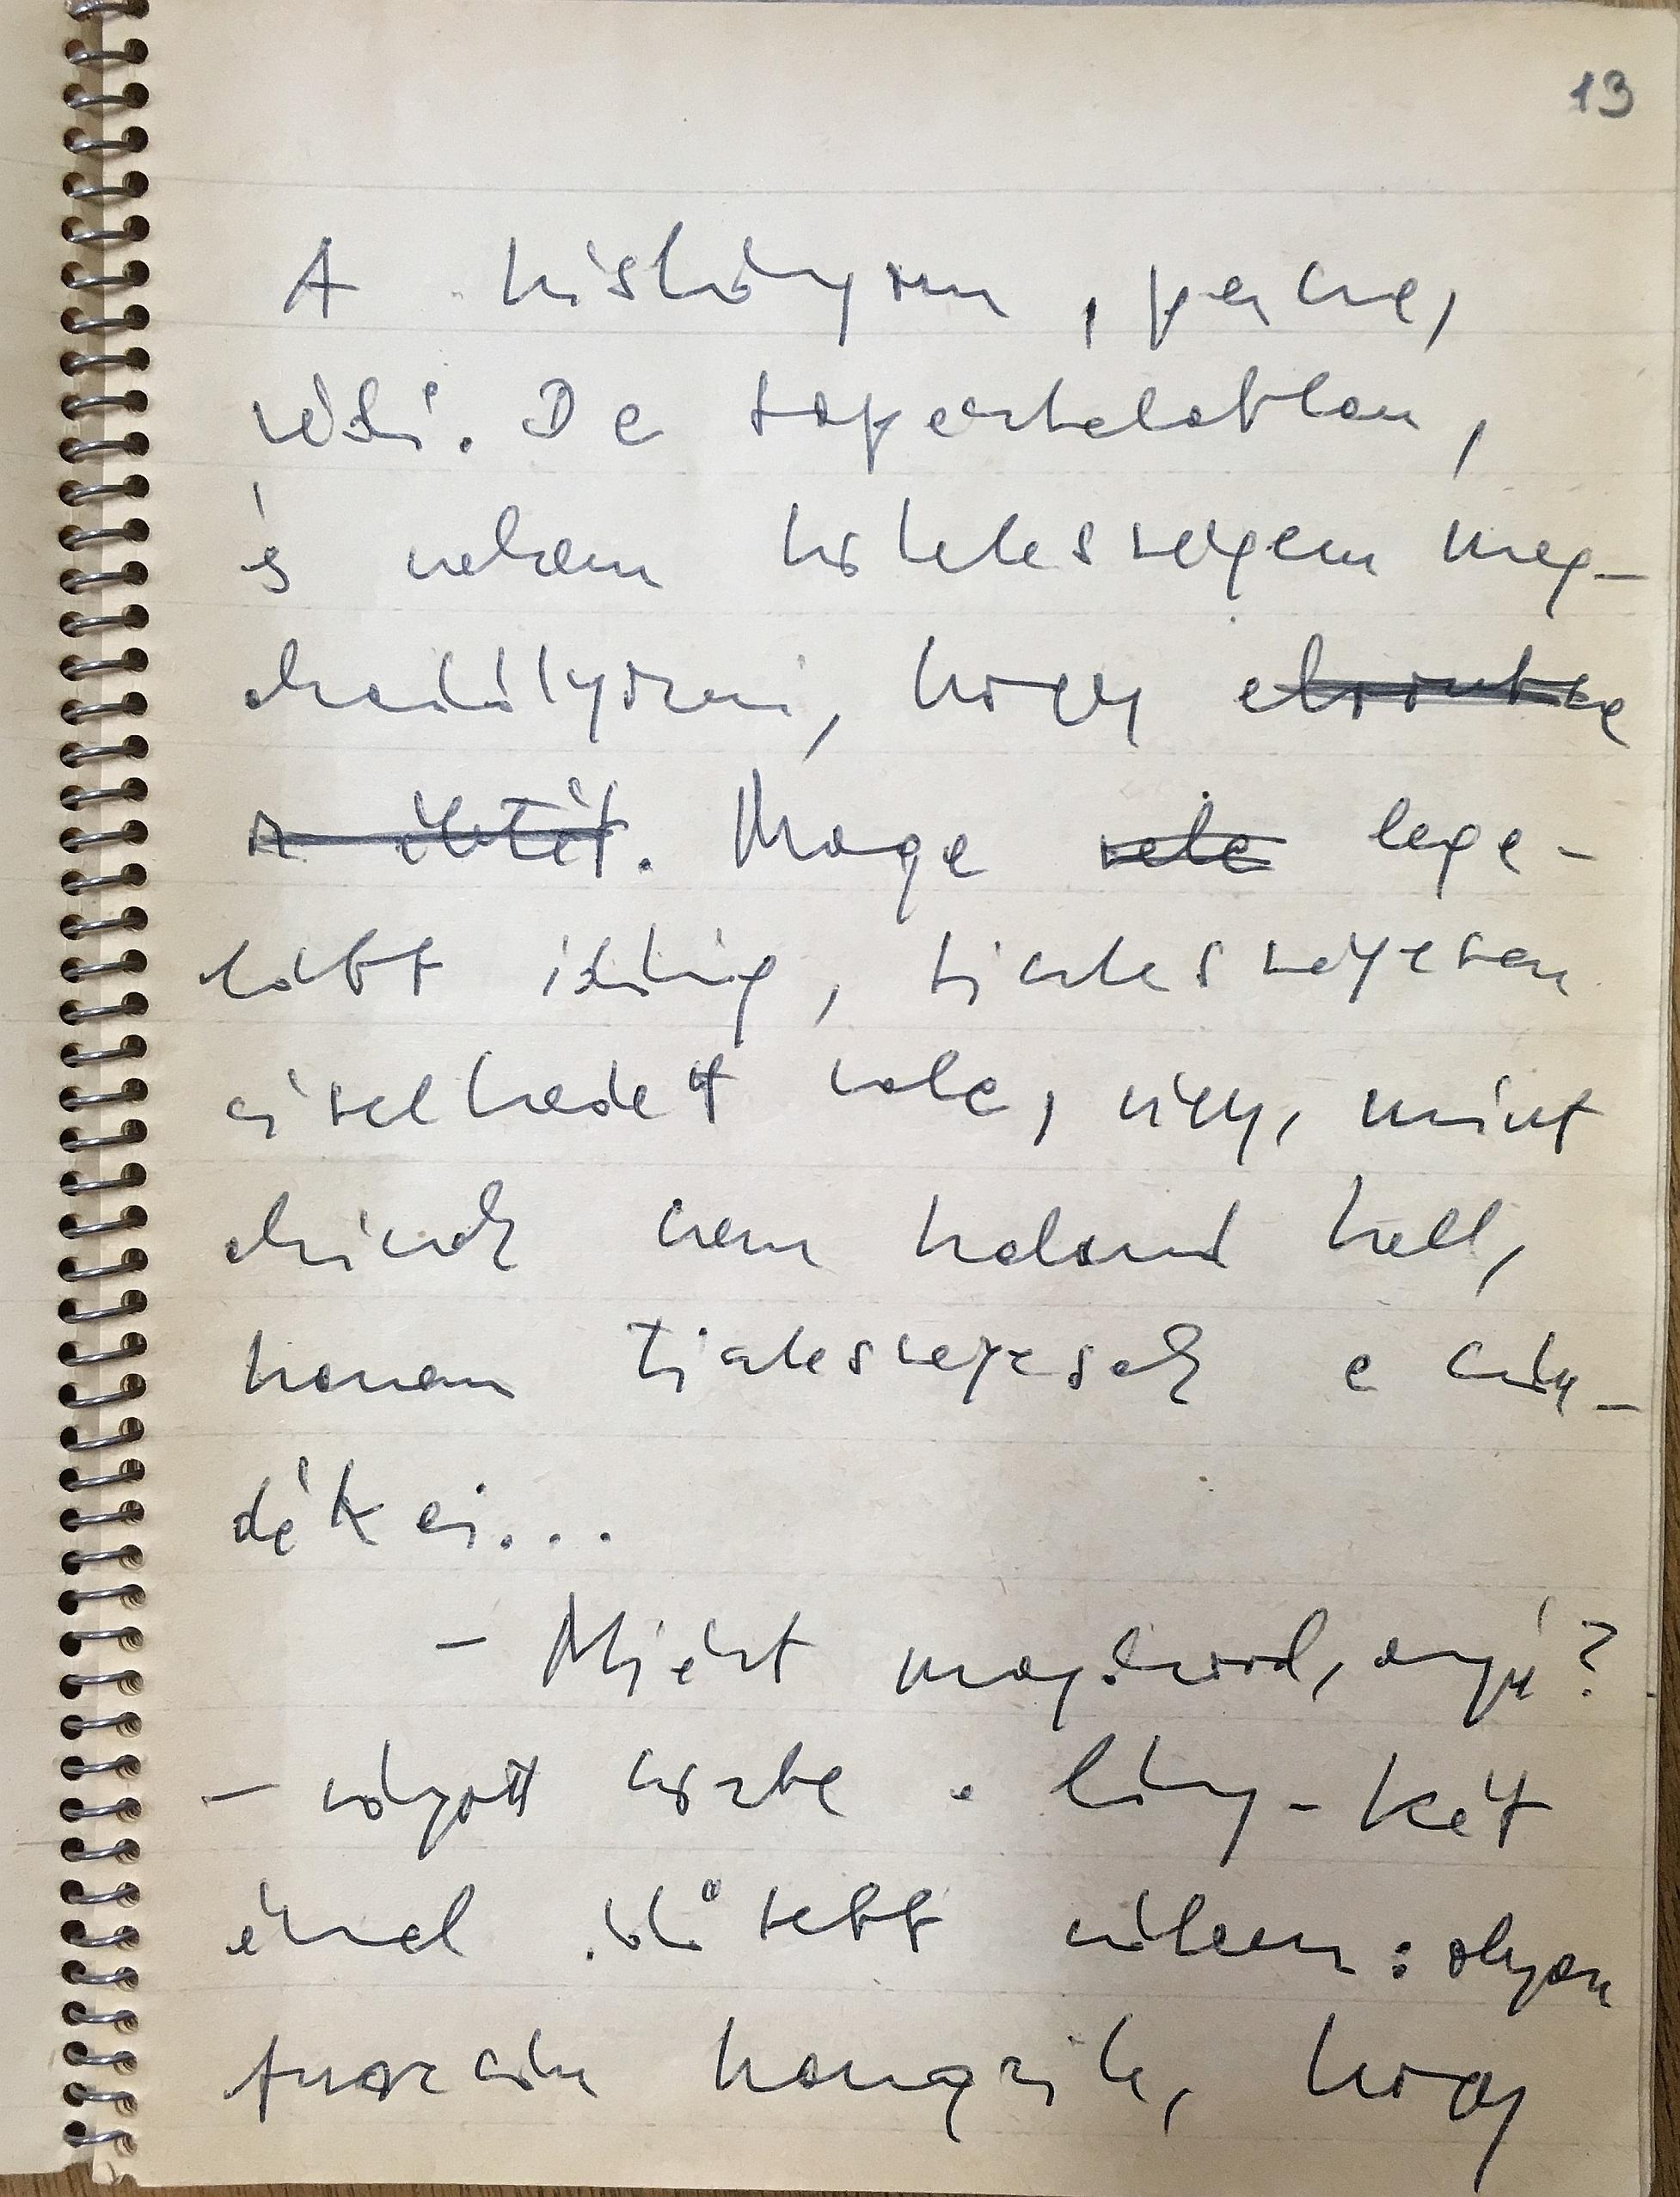 13
A kislányom, persze,
védi. De tapasztalatlan,
és nekem kötelességem meg-
akadályozni, hogy elrontsa
az életét. Maga vele lega-
lább illik, tisztességesen
viselkedett vele, úgy, mint
akinek nem kaland kell,
hanem tisztességesek a szán-
dékai...
– Miért magázod, anyu?
– vágott közbe a lány – két
évvel idősebb nálam: olyan
furcsán hangzik, hogy